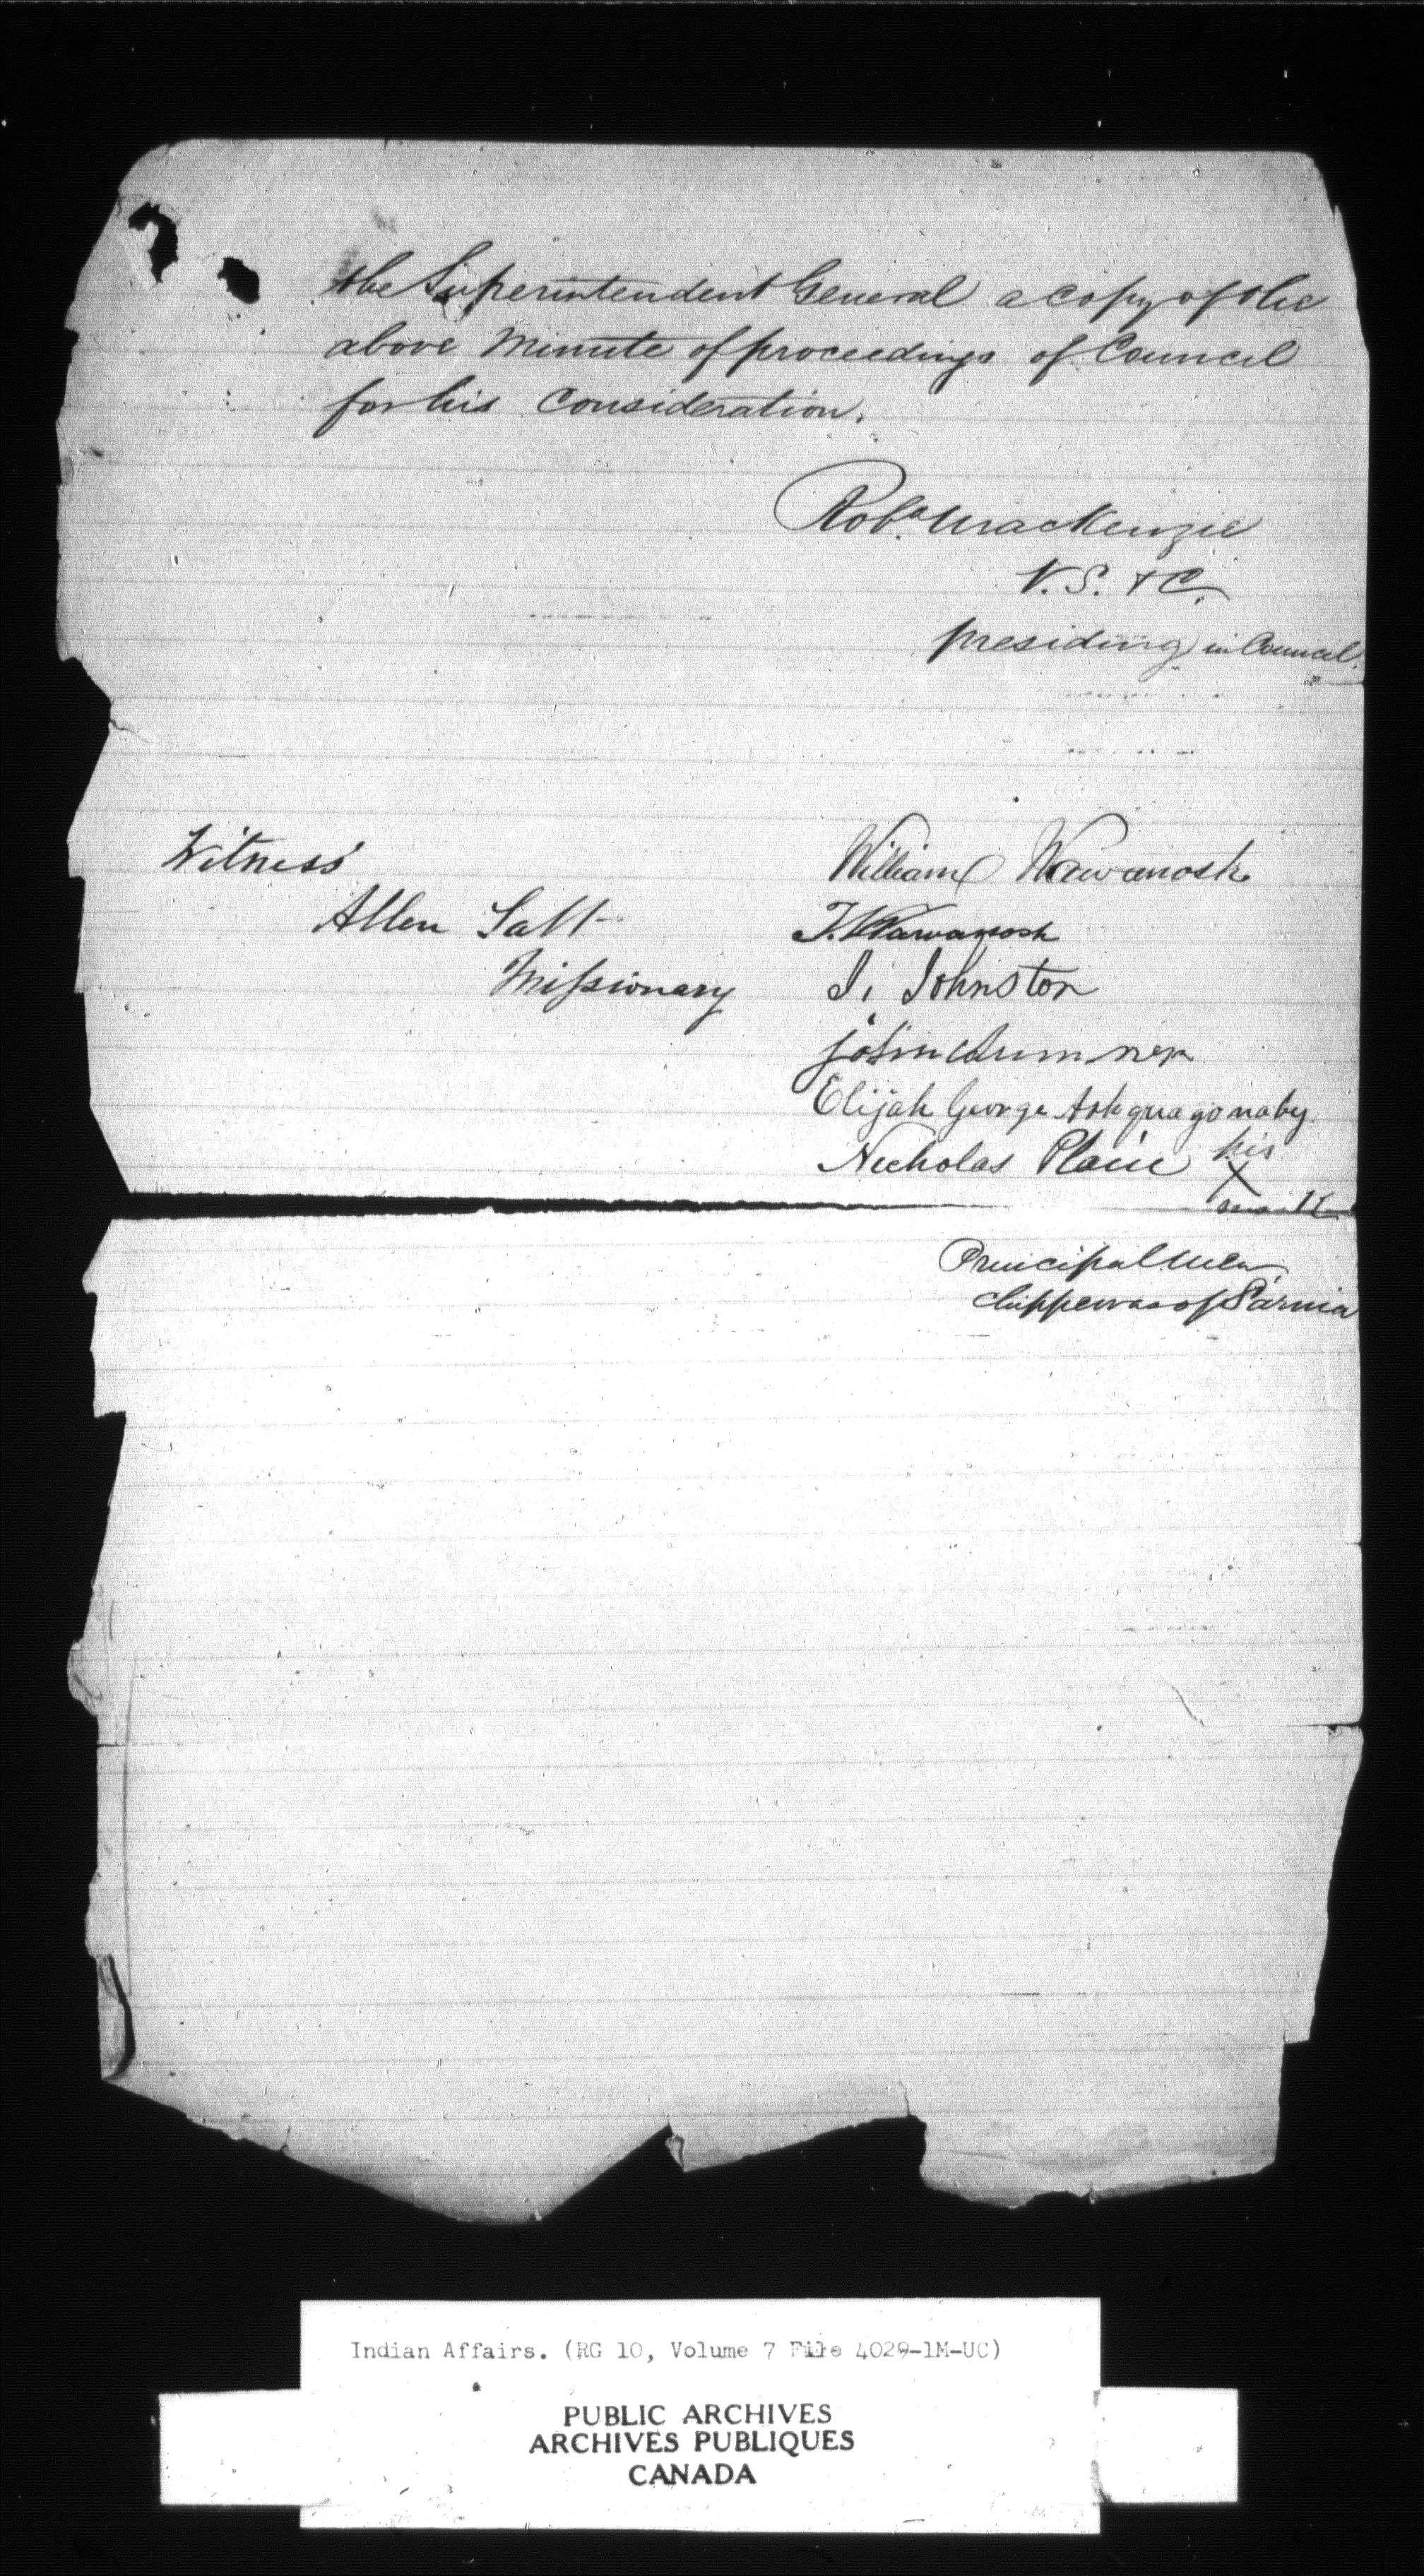 the Superintendent General a copy of the
above Minute of proceedings of Council
for his Consideration.
Robt. Mackenzie
V. S. & C.
presiding in Council.
Witness
Allen Salt
Missionary
William Wawanosh
J. Wawanosh
J. Johnston
john Summer
Elijah George Ashquagonaby
Nicholas Plain his
X
mark
Principal Men
Chippewas of Sarnia
Indian Affairs. (RG 10, Volume 7 File 4029-1M-UC)
PUBLIC ARCHIVES
ARCHIVES PUBLIQUES
CANADA